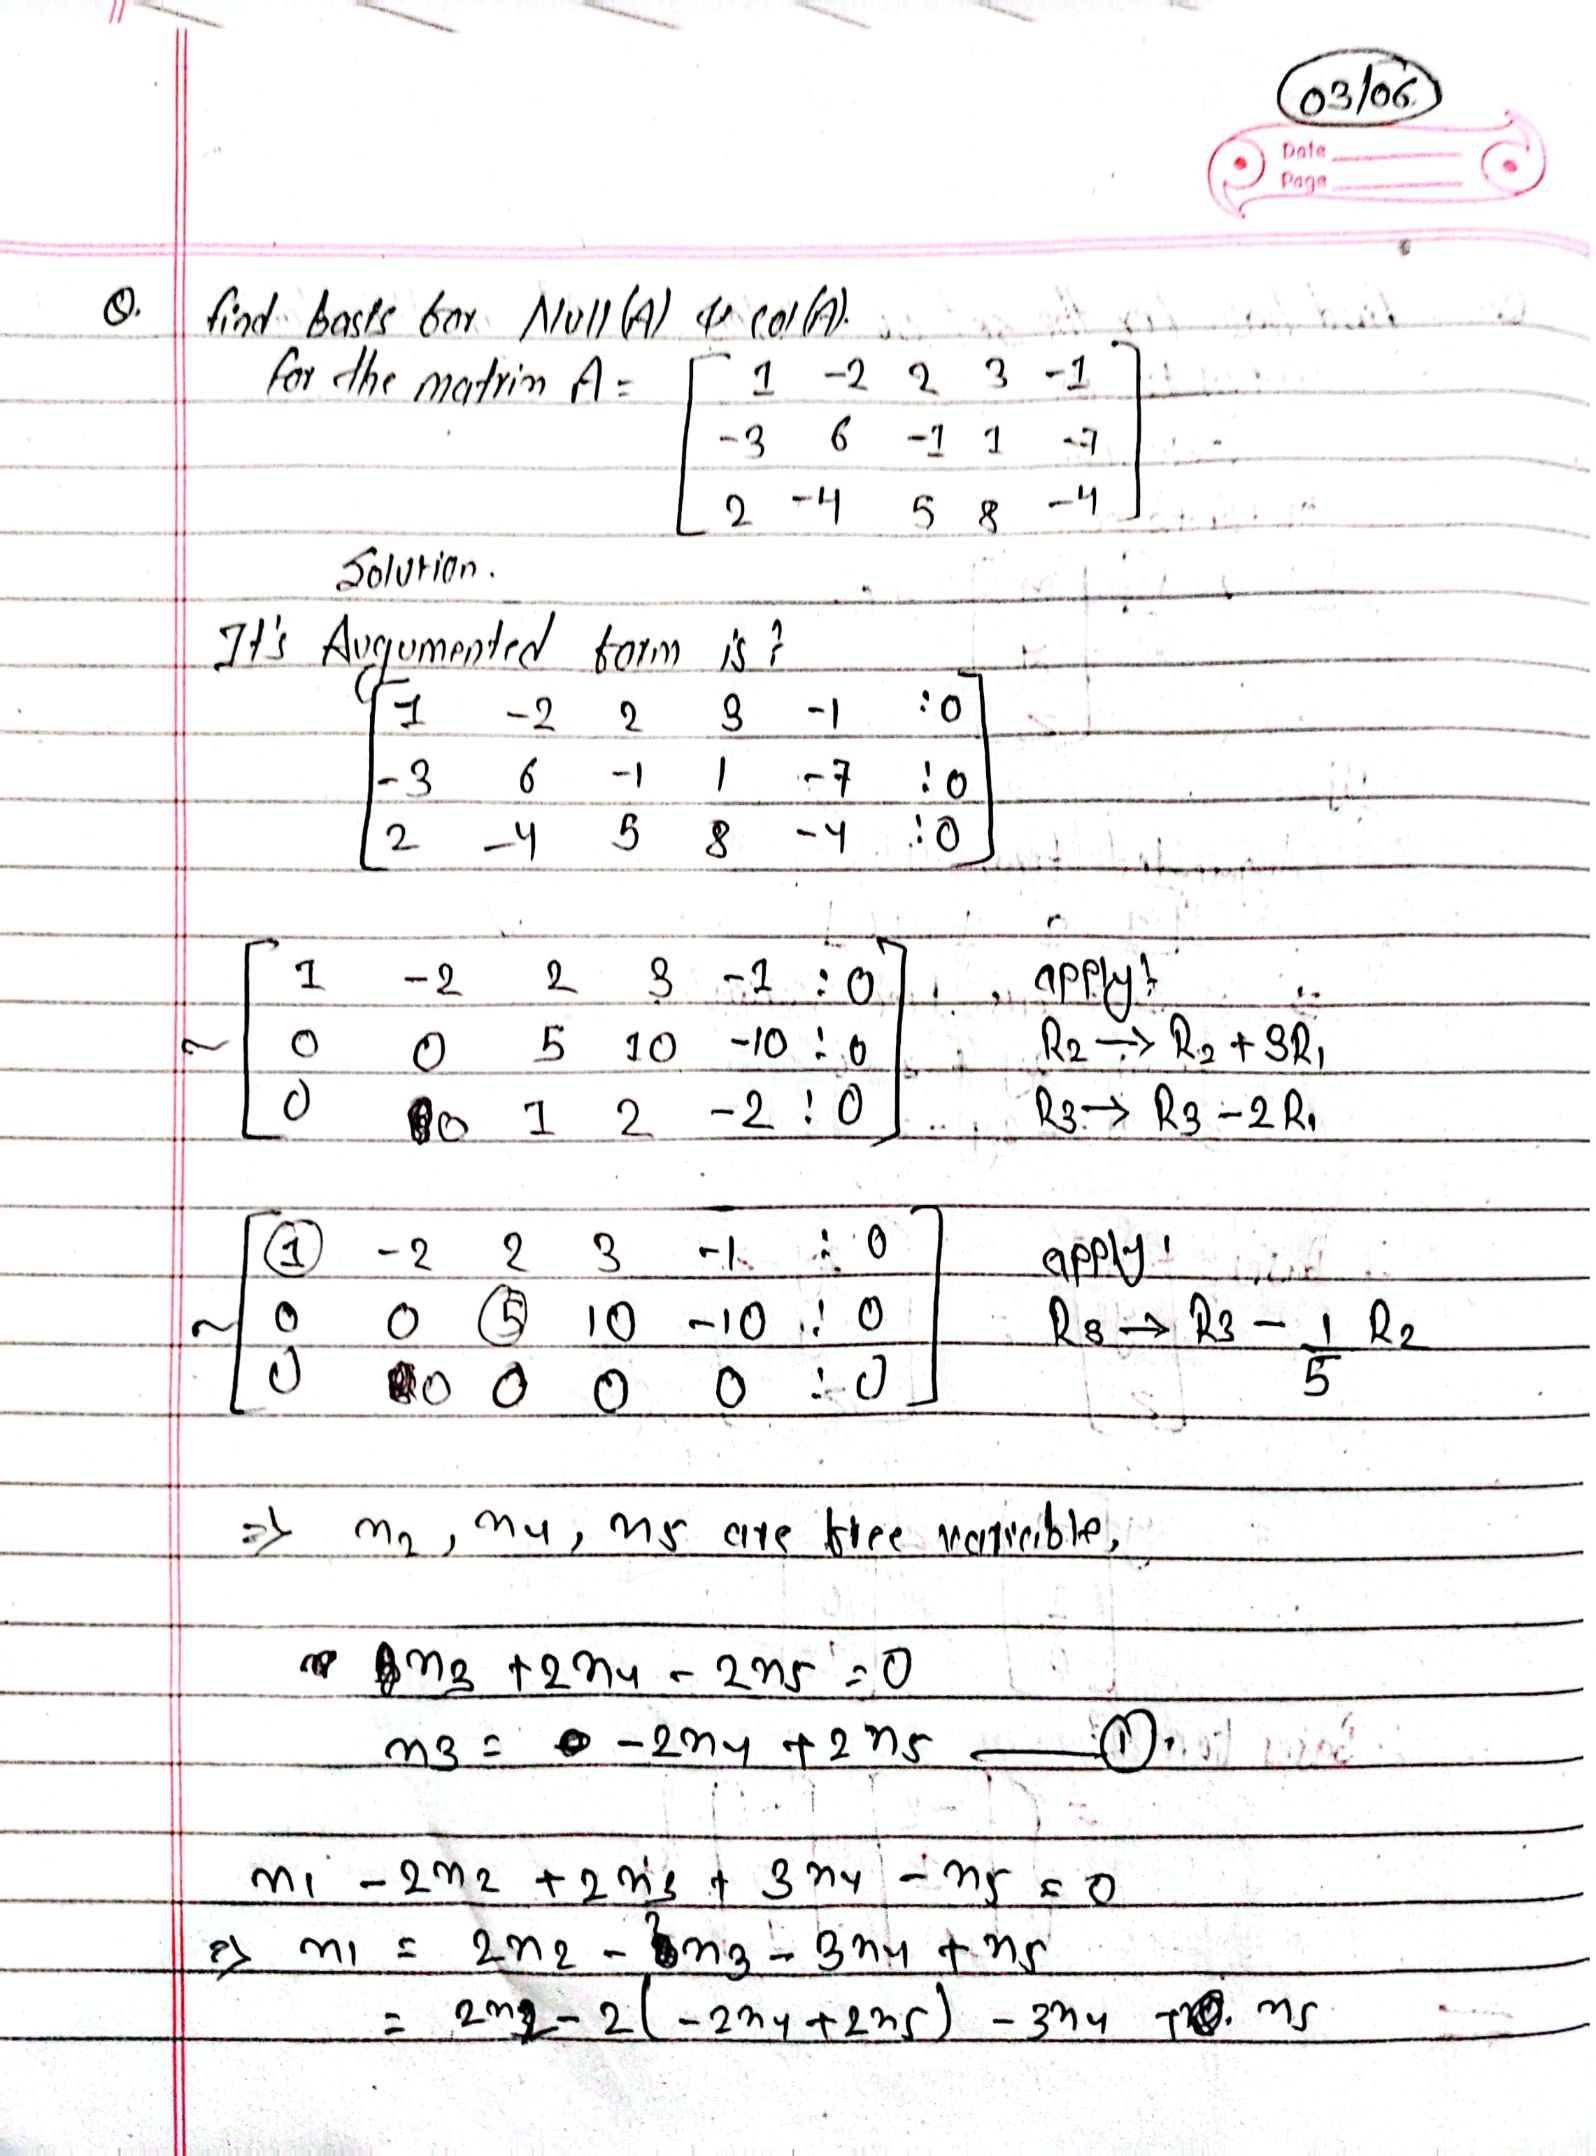 03/06
Date
Page
Q. find basis for Null(A) & col(A).
for the matrix A = [ 1 -2 2 3 -1
-3 6 -1 1 -7
2 -4 5 8 -4 ]
Solution.
It's Augumented form is:
[ 1 -2 2 3 -1 : 0
-3 6 -1 1 -7 : 0
2 -4 5 8 -4 : 0 ]
[ 1 -2 2 3 -1 : 0 ] apply:
~ 0 0 5 10 -10 : 0 R2 → R2 + 3R1
0 0 1 2 -2 : 0 R3 → R3 - 2R1
[ 1 -2 2 3 -1 : 0 ] apply:
~ 0 0 5 10 -10 : 0 R3 → R3 - 1/5 R2
0 0 0 0 0 : 0
⇒ x2, x4, x5 are free variable.
x3 + 2x4 - 2x5 = 0
x3 = -2x4 + 2x5 —— ①.
x1 - 2x2 + 2x3 + 3x4 - x5 = 0
⇒ x1 = 2x2 - 2x3 - 3x4 + x5
= 2x2 - 2(-2x4 + 2x5) - 3x4 + x5